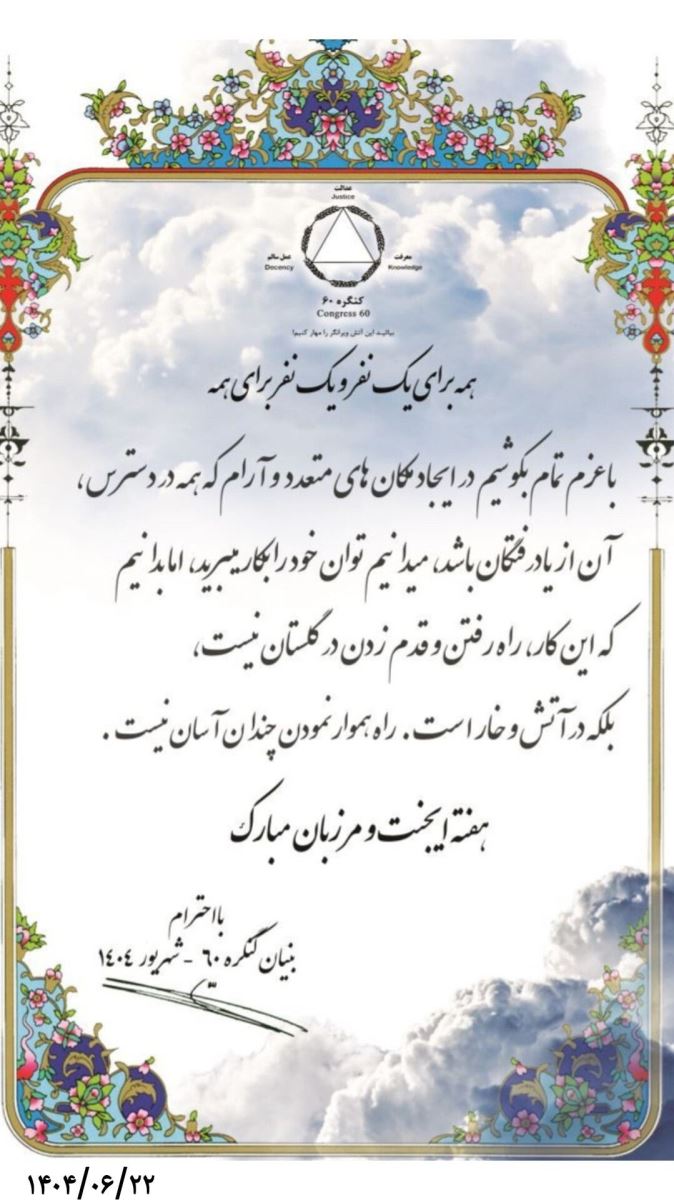 عدالت
Justice
عمل سالم
Decency
معرفت
Knowledge
کنگره ۶۰
Congress 60
بیائید این آتش ویرانگر را مهار کنیم!
همه برای یک نفر و یک نفر برای همه
با عزم تمام بکوشیم در ایجاد مکان های متعدد و آرام که همه در دسترس،
آن از یاد رفتگان باشد، میدانیم توان خود را بکار میبرید، اما بدانیم
که این کار، راه رفتن و قدم زدن در گلستان نیست،
بلکه در آتش و خار است. راه هموار نمودن چندان آسان نیست.
هفته ایجنت و مرزبان مبارک
با احترام
بنیان کنگره ۶۰ - شهریور ۱۴۰۴
۱۴۰۴/۰۶/۲۲